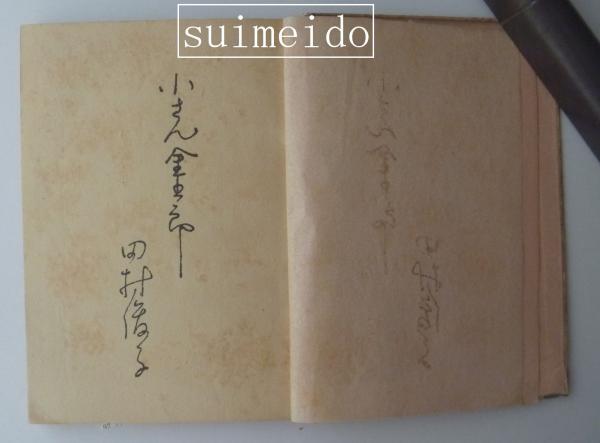 suimeido
小さん金五郎
田村俊子